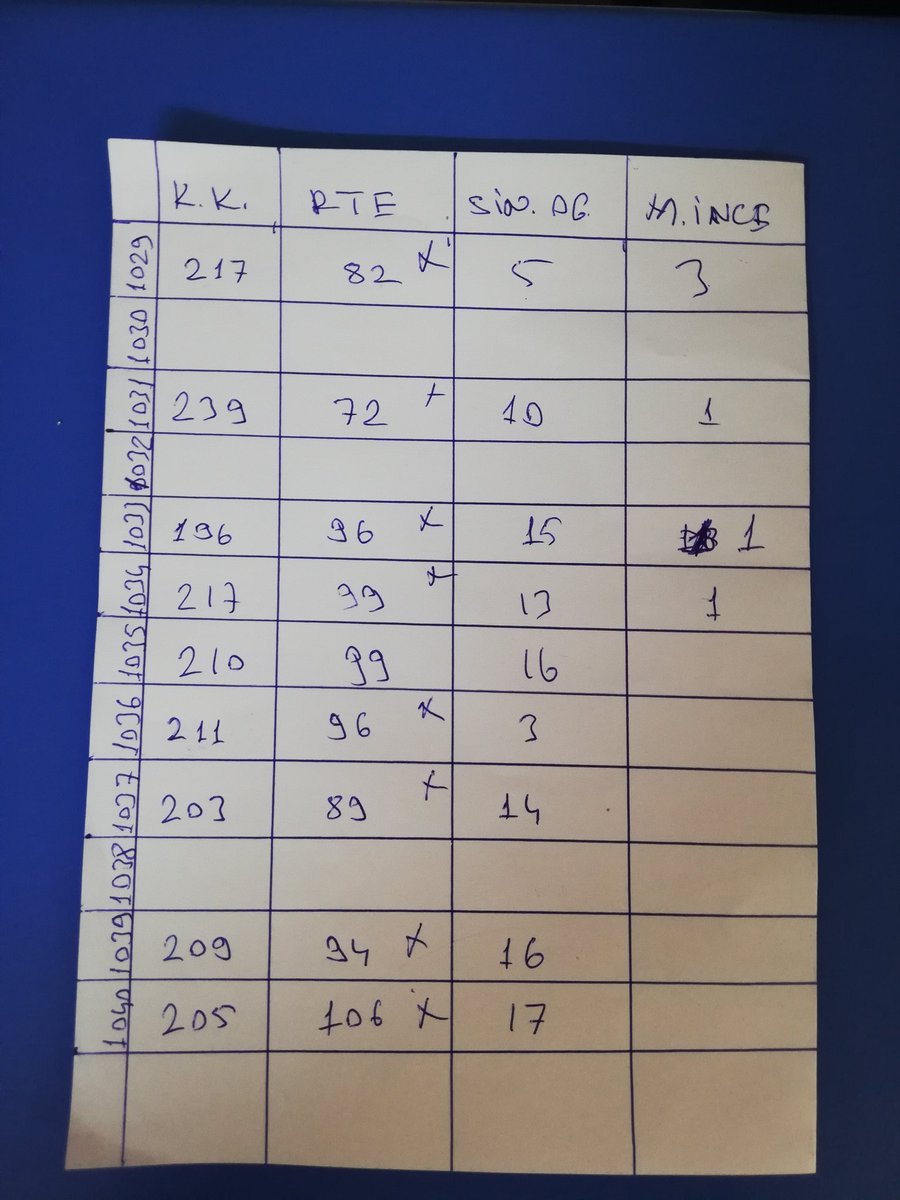 K.K. RTE SİN. OG. M. İNCE
1029 217 82 x 5 3
1030
1031 239 72 x 10 1
1032
1033 196 96 x 15 1
1034 217 99 x 13 1
1035 210 99 16
1036 211 96 x 3
1037 203 89 x 14
1038
1039 209 94 x 16
1040 205 106 x 17